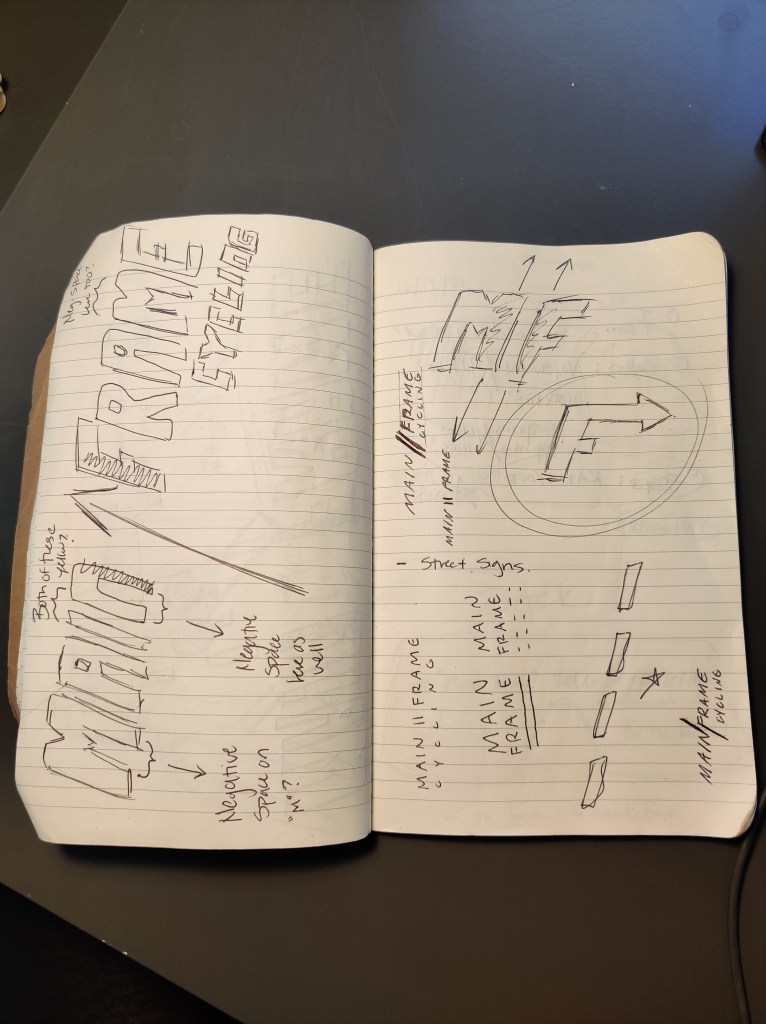 MAIN
FRAME
CYCLING
Both of these
yellow?
Neg. Space
here too?
Negative
Space on
"M"?
Negative
Space
here as
well
MAIN // FRAME
CYCLING
MAIN II FRAME
MF
F
- Street Signs.
MAIN II FRAME
CYCLING
MAIN
FRAME
MAIN
FRAME
MAIN/FRAME
CYCLING